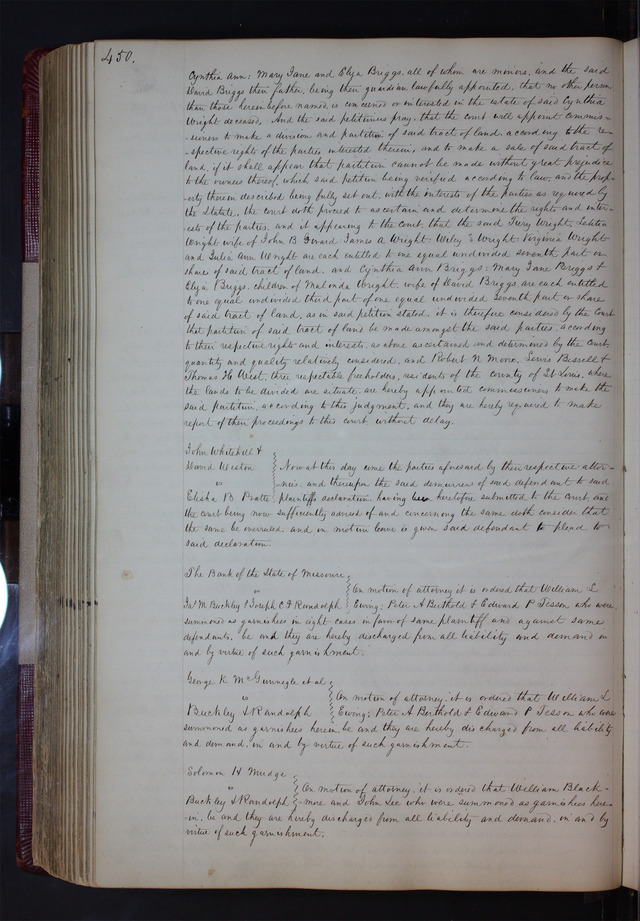 450.
Cynthia Ann: Mary Jane and Eliza Briggs. all of whom are minors. and the said
David Briggs their father, being their guardian lawfully appointed, that no other person
than those hereinbefore named, is concerned or interested in the estate of said Cynthia
Wright deceased, And the said petitioners pray, that the court will appoint commis-
-sioners to make a division and partition of said tract of land, according to the re-
-spective rights of the parties interested therein, and to make a sale of said tract of
land, if it shall appear that partition cannot be made without great prejudice
to the owners thereof, which said petition being verified according to law, and the prop-
-erty therein described being fully set out, with the interests of the parties as required by
the Statute, the court doth proceed to ascertain and determine the rights and inter-
ests of the parties, and it appearing to the court, that the said Wright, Letitia
Wright wife of John B James A Wright. Wiley Wright Virginia Wright
and Julia Ann Wright are each entitled to one equal undivided seventh part or
share of said tract of land, and Cynthia Ann Briggs: Mary Jane Briggs &
Eliza Briggs. children of Malinda Wright. wife of David Briggs are each entitled
to one equal undivided third part of one equal undivided seventh part or share
of said tract of land, as in said petition stated, it is therefore considered by the Court
that partition of said tract of land be made amongst the said parties, according
to their respective rights and interests, as above ascertained and determined by the court,
quantity and quality relatively considered, and Robert N Moore, Lewis Bissell &
Thomas H West, three respectable freeholders, residents of the county of St Louis, where
the lands to be divided are situate. are hereby appointed commissioners to make the
said partition, according to this judgment, and they are hereby required to make
report of their proceedings to this court without delay.
John Whitehill &
David Weston Now at this day come the parties aforesaid by their respective attor-
" -neys. and thereupon the said demurrer of said defendant to said
Elisha B Pratte plaintiffs declaration having been heretofore submitted to the court, and
the court being now sufficiently advised of and concerning the same doth consider that
the same be overruled. and on motion leave is given said defendant to plead to
said declaration.
The Bank of the State of Missouri
" On motion of attorney it is ordered that William L
Jas M Buckley & Joseph C F Randolph Ewing; Peter A Berthold & Edward P Tesson who were
summoned as garnishees in eight cases in favor of same plaintiff and against same
defendants, be and they are hereby discharged from all liability and demand in
and by virtue of such garnishment.
George K McGunnegle et al
" On motion of attorney, it is ordered that William L
Buckley & Randolph Ewing; Peter A Berthold & Edward P Tesson who were
summoned as garnishees herein, be and they are hereby discharged from all liability
and demand, in and by virtue of such garnishment.
Solomon H Mudge
" On motion of attorney. it is ordered that William Black-
Buckley & Randolph -more and John Lee who were summoned as garnishees here-
-in, be and they are hereby discharged from all liability and demand. in and by
virtue of such garnishment.